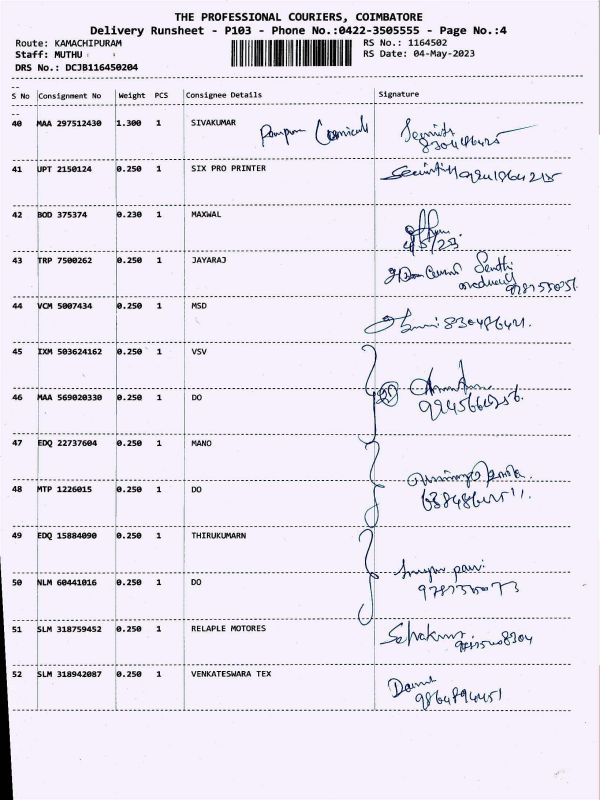 THE PROFESSIONAL COURIERS, COIMBATORE
Delivery Runsheet - P103 - Phone No.:0422-3505555 - Page No.:4
Route: KAMACHIPURAM RS No.: 1164502
Staff: MUTHU RS Date: 04-May-2023
DRS No.: DCJB116450204
S No Consignment No Weight PCS Consignee Details Signature
40 MAA 297512430 1.300 1 SIVAKUMAR
41 UPT 2150124 0.250 1 SIX PRO PRINTER
42 BOD 375374 0.230 1 MAXWAL
4/5/23
43 TRP 7500262 0.250 1 JAYARAJ
44 VCM 5007434 0.250 1 MSD
45 IXM 503624162 0.250 1 VSV
46 MAA 569020330 0.250 1 DO
47 EDQ 22737604 0.250 1 MANO
48 MTP 1226015 0.250 1 DO
49 EDQ 15884090 0.250 1 THIRUKUMARN
50 NLM 60441016 0.250 1 DO
51 SLM 318759452 0.250 1 RELAPLE MOTORES
52 SLM 318942087 0.250 1 VENKATESWARA TEX
9864894451